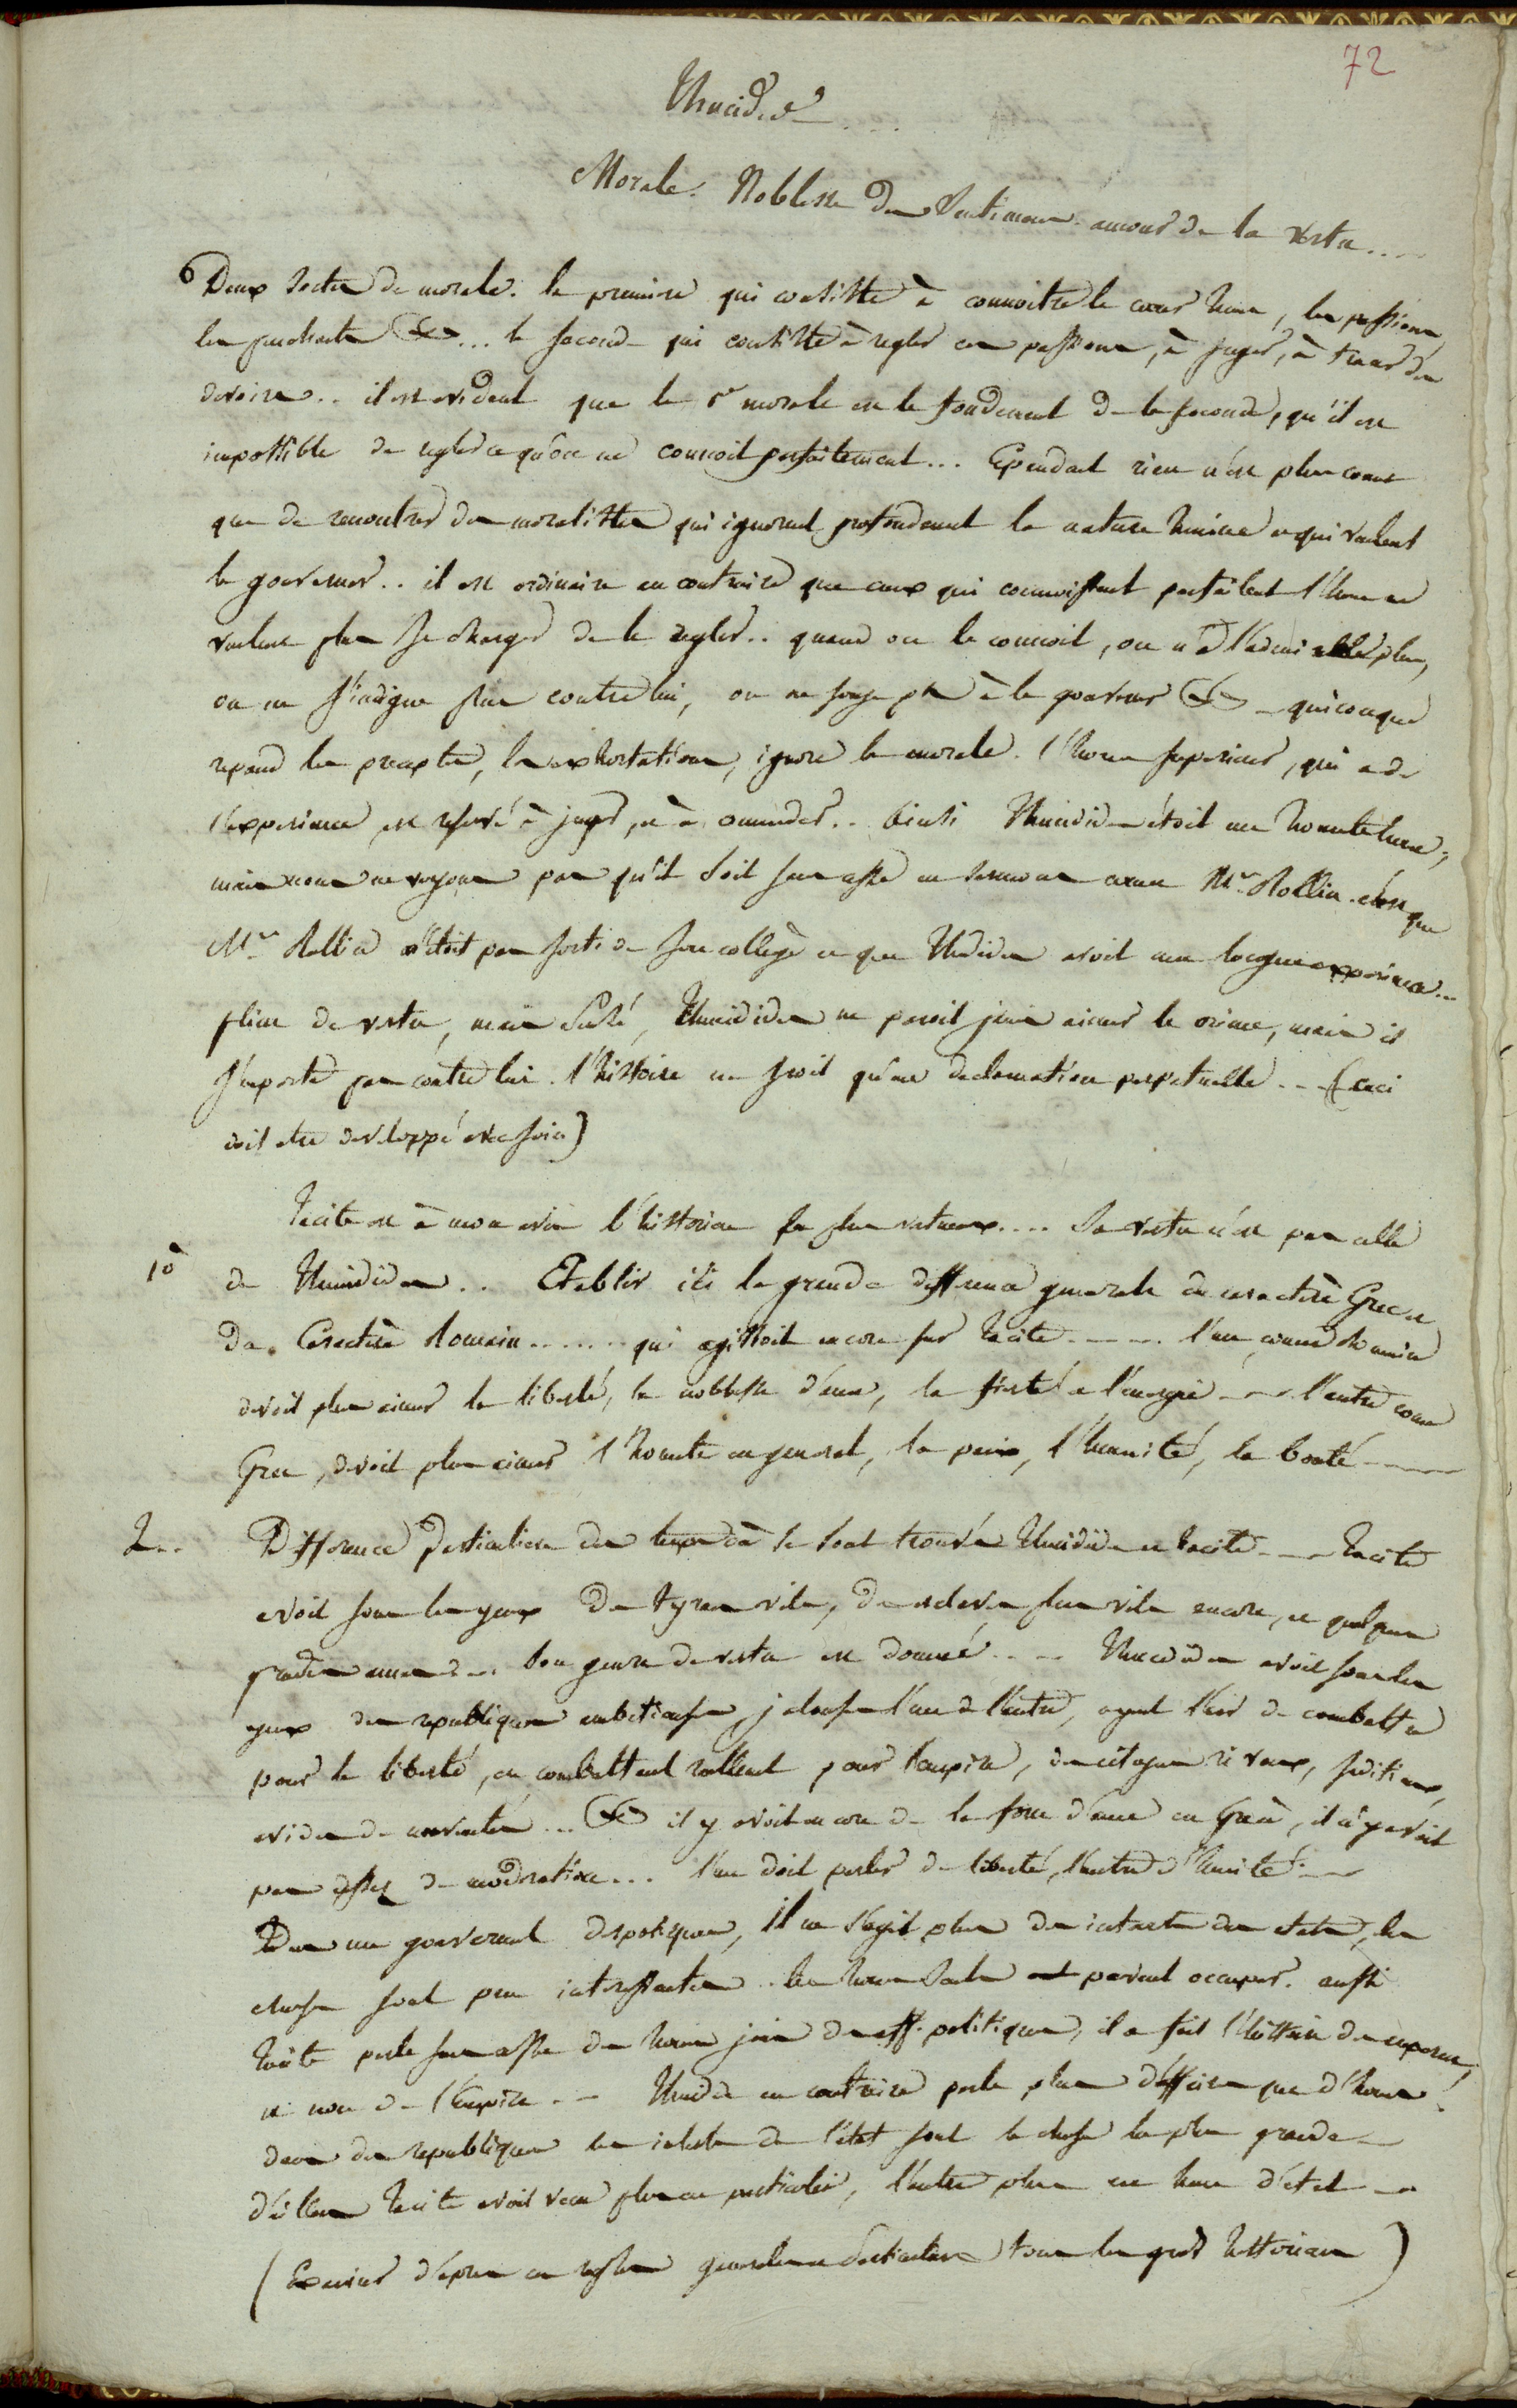 72
Thucidide ...
Morale. Noblesse des Sentimens. amour de la vertu....
6 Deux sectes de morale. la premiere qui consiste à connoitre le cœur humain, les passions
les penchants &c... la seconde qui consiste à regler ces passions, à juger, à tracer des
devoirs.. il est evident que la 1ere morale est le fondement de la seconde, qu'il est
impossible de regler ce qu'on ne connoit parfaitement... Cependant rien n'est plus comun
que de rencontrer des moralistes qui ignorent profondement la nature humaine et qui veulent
la gouverner.. il est ordinaire au contraire que ceux qui connoissent parfaitement l'home ne
veulent plus se charger de le regler.. quand on le connoit, on ne l'admire plus,
on ne s'indigne plus contre lui, on ne songe plus à le gouverner &c - quiconque
repand les preceptes, les exhortations, ignore la morale. l'home superieur, qui a de
l'experience, est reservé à juger, et à amender.. Ainsi Thucidide étoit un honnete home,
mais nous ne voyons pas qu'il soit sans cesse en sermons comme Mr Rollin. c'est que
Mr Rollin n'étoit pas sorti de son collège et que Thucidide avoit une longue experience...
plein de vertu, mais sensé, Thucidide ne paroit jamais aimer le crime, mais il
s'emporte pas contre lui. l'histoire ne seroit qu'une declamation perpetuelle... (ceci
doit etre developpé avec soin)
Tacite est à mon avis l'historien le plus vertueux.... Sa vertu n'est pas celle
1o de Thucidide.. Etablir ici la grande difference generale du caractère Grec et
du Caractère Romain....... qui agissoit encore sur Tacite.... l'un comme Romain
devoit plus aimer la liberté, la noblesse d'ame, la fierté et l'energie --- l'autre come
Grec, devoit plus aimer l'honnete en general, la paix, l'humanité, la bonté ---
2.. Difference Particuliere des temps où se sont trouvés Thucidide et Tacite --- Tacite
avoit sous les yeux des tyrans vils, des esclaves plus vils encore, et quelques
grandes ames... Son genre de vertu est donné.... Thucidide avoit sous les
yeux des republiques ambitieuses, jalouses l'une de l'autre, ayant l'air de combattre
pour la liberté, et combattant reellement pour l'empire, des citoyens rivaux, seditieux,
avides de nouveautés... &c il y avoit encore de la force d'ame en Grèce, il n'y avoit
pas assez de moderation... l'un doit parler de liberté, l'autre d'humanité. --
Dans un gouvernement despotique, il ne s'agit plus des interets des etats, les
choses sont peu interessantes.. les homes seuls peuvent occuper. aussi
Tacite parle sans cesse des homes, jamais des aff. politiques, il a fait l'histoire des empereurs,
et non de l'Empire.-- Thucidide au contraire parle plus d'affaires que d'homes.
dans des republiques les interets de l'etat sont la chose la plus grande --
d'ailleurs Tacite avoit vecu plus en particulier, l'autre plus en home d'etat --
(Examiner d'après ces regles generales et particulieres tous les grds historiens)